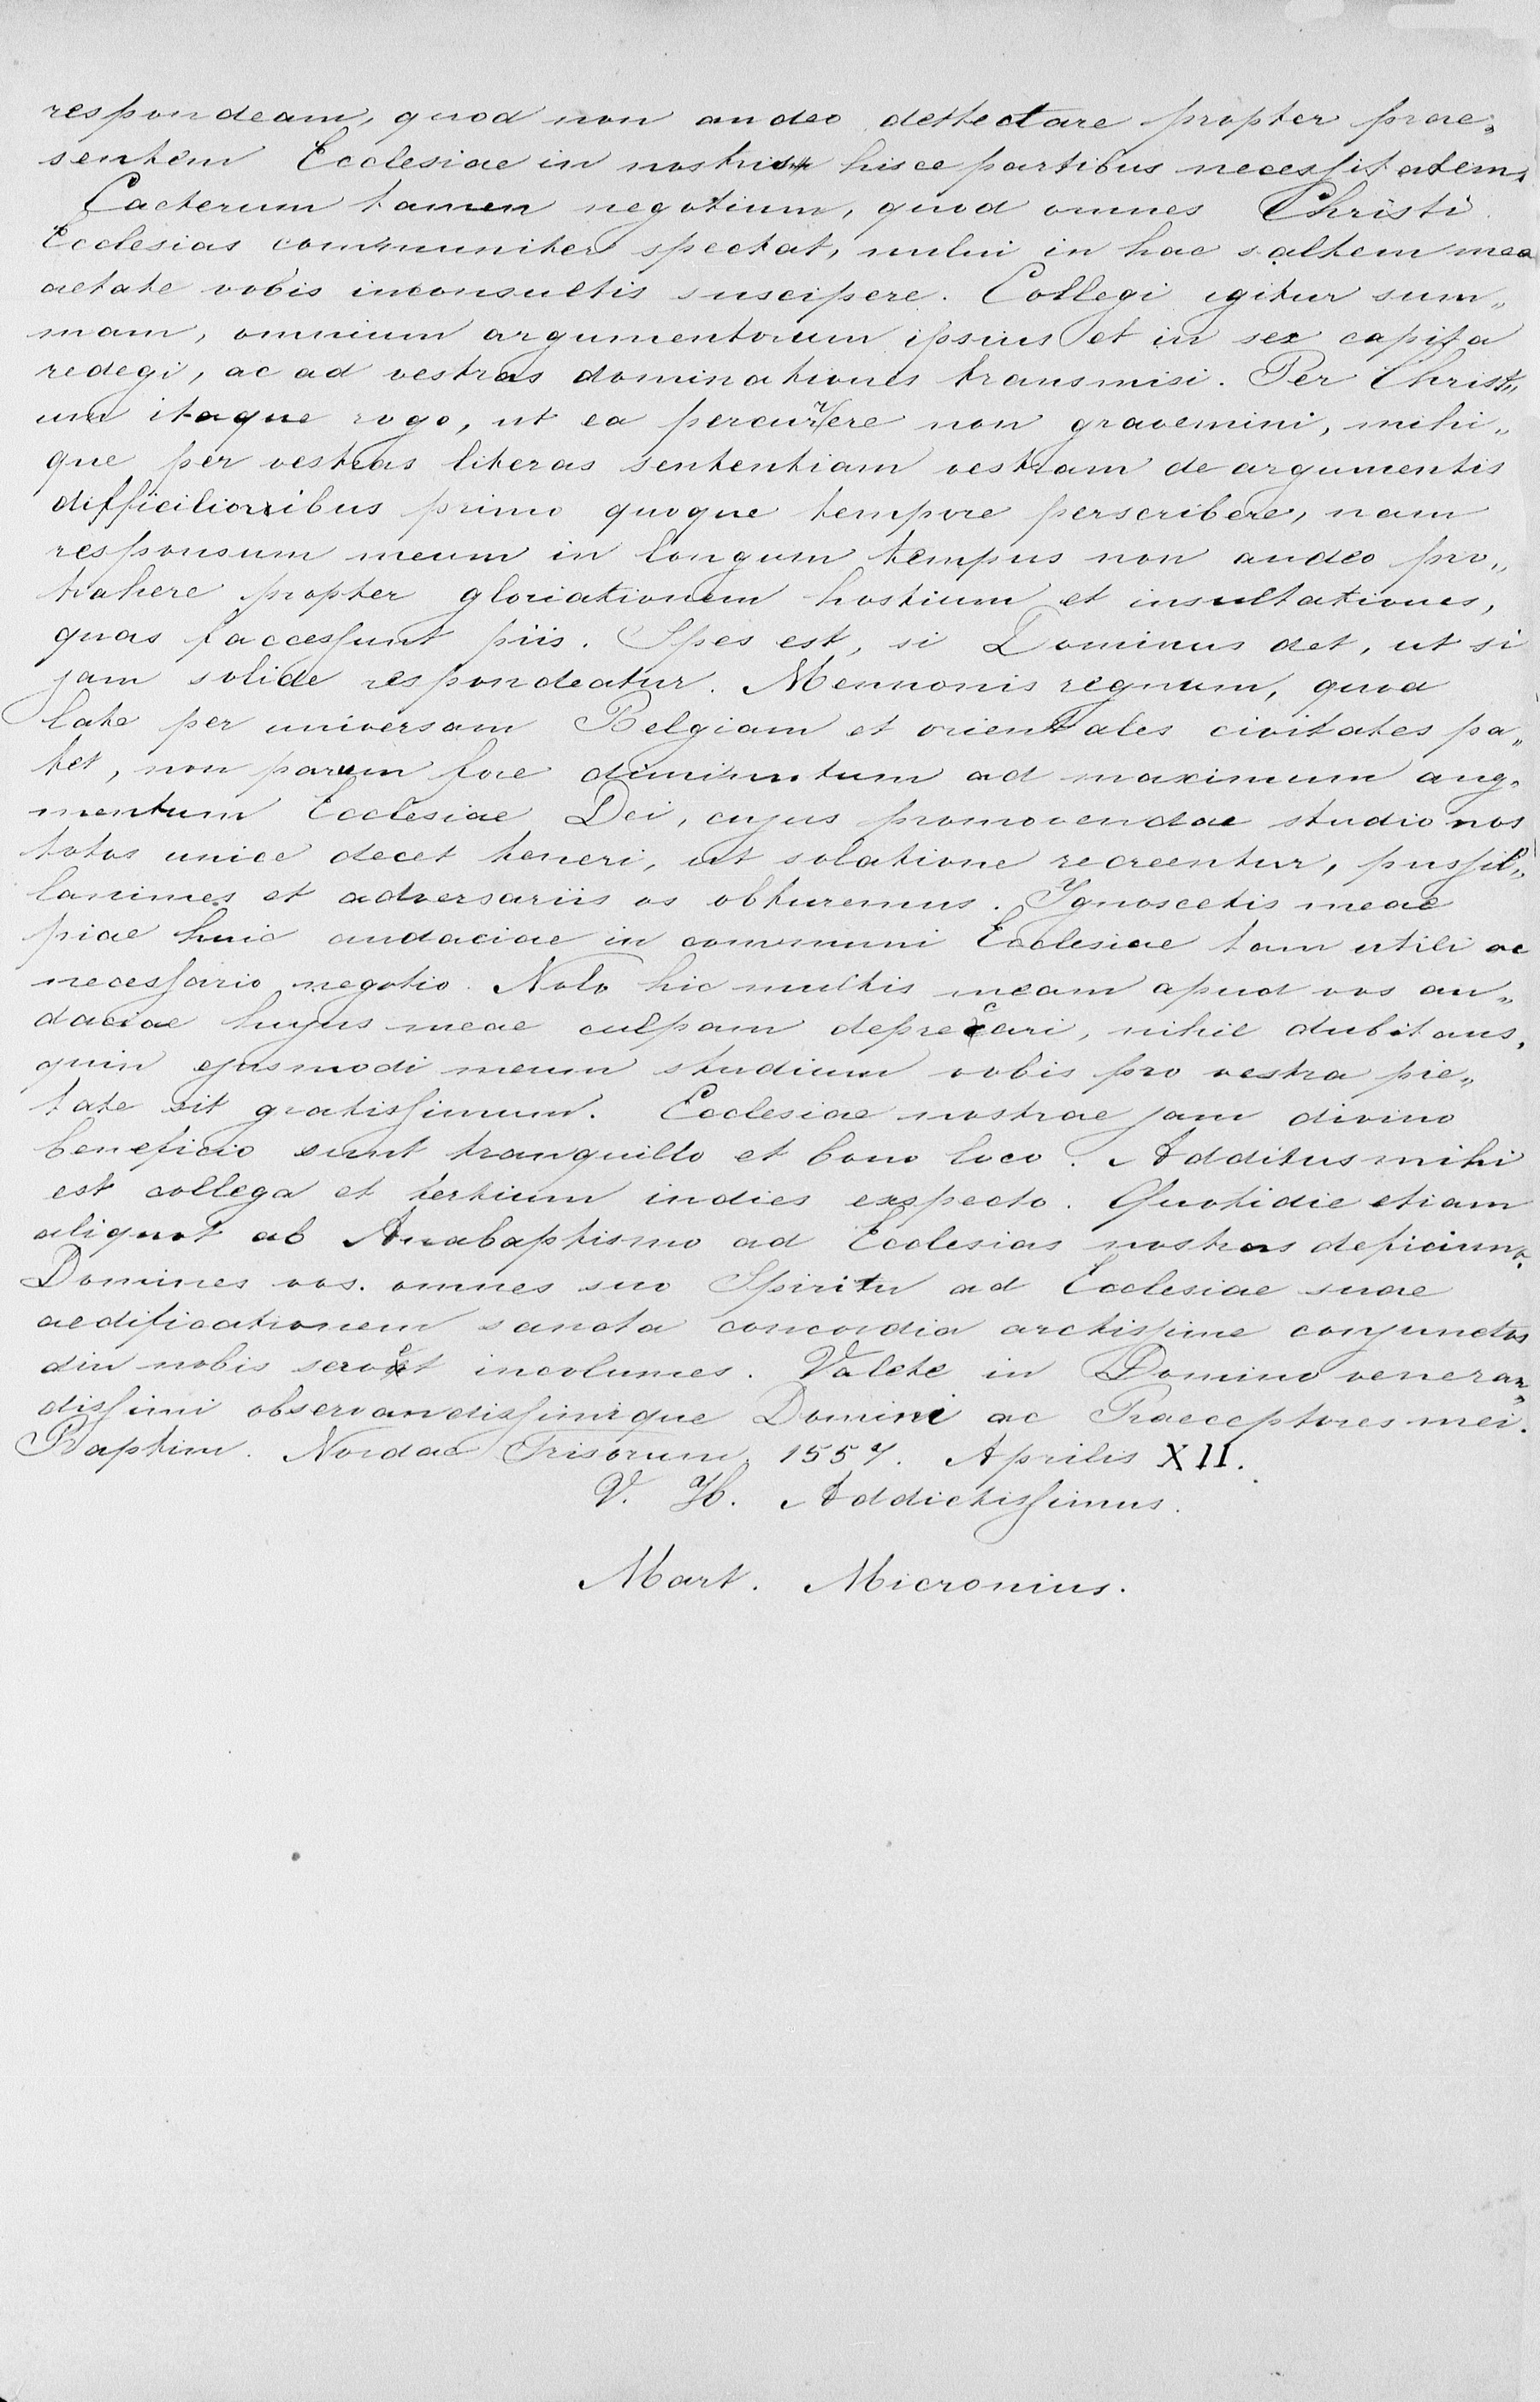 respondeam, quod non audeo detrectare propter prae„
sentem Ecclesiae in nostris hisce partibus necessitatem.
Caeterum tamen negotium, quod omnes Christi
Ecclesias communiter spectat, nolui in hac saltem mea
aetate vobis inconsultis suscipere. Collegi igitur sum„
mam, omnium argumentorum ipsius et in sex capita
redegi, ac ad vestras dominationes transmisi. Per Christ„
um itaque rogo, ut ea percurrere non gravemini, mihi„
que per vestras literas sententiam vestram de argumentis
difficilioribus primo quoque tempore perscribere, nam
responsum meum in longum tempus non audeo pro„
trahere propter gloriationem hostium et insultationes,
quas faccessunt piis. Spes est, si Dominus det, ut si
jam solide respondeatur. Mennonis regnum, quod
late per universam Belgiam et orientales civitates pa„
tet, non parum fore diminutum ad maximum aug„
mentum Ecclesiae Dei, cujus promovendae studio nos
totos unice decet teneri, ut solatione recreentur, pussil„
lanimes et adversariis os obturemus. Ignoscetis meae
piae huic audaciae in communi Ecclesiae tam utili ac
necessario negotio. Nolo hic multis meam apud vos au„
daciae hujus meae culpam deprecari, nihil dubitans,
quin ejusmodi meum studium vobis pro vestra pie„
tate sit gratissimum. Ecclesiae nostrae jam divino
beneficio sunt tranquillo et bono loco. Additus mihi
est collega et tertium indies exspecto. Quotidie etiam
aliquot ab Anabaptismo ad Ecclesias nostras deficiunt.
Domines vos. omnes suo Spiritu ad Ecclesiae suae
aedificationem sancta concordia arctissime conjunctos
diu nobis servet incolumes. Valete in Domino veneran„
dissimi observandissimique Domini ac Praeceptores mei.
Raptim. Nordae Frisorum. 1557. Aprilis XII.
V. H. Addictissimus.
Mart. Micronius.